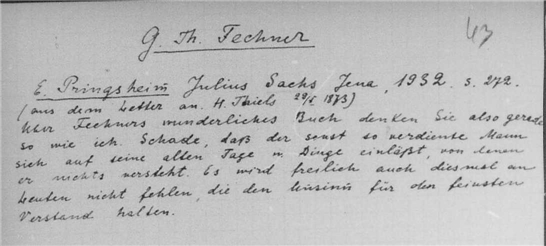 43
G. Th. Fechner
E. Pringsheim Julius Sachs Jena, 1932. S. 272.
(aus dem Letter an H. Thiels 29/X 1873)
Über Fechners wunderliches Buch denken Sie also gerade
so wie ich. Schade, daß der sonst so verdiente Mann
sich auf seine alten Tage in Dinge einläßt, von denen
er nichts versteht. Es wird freilich auch diesmal an
Leuten nicht fehlen, die den Unsinn für den feinsten
Verstand halten.